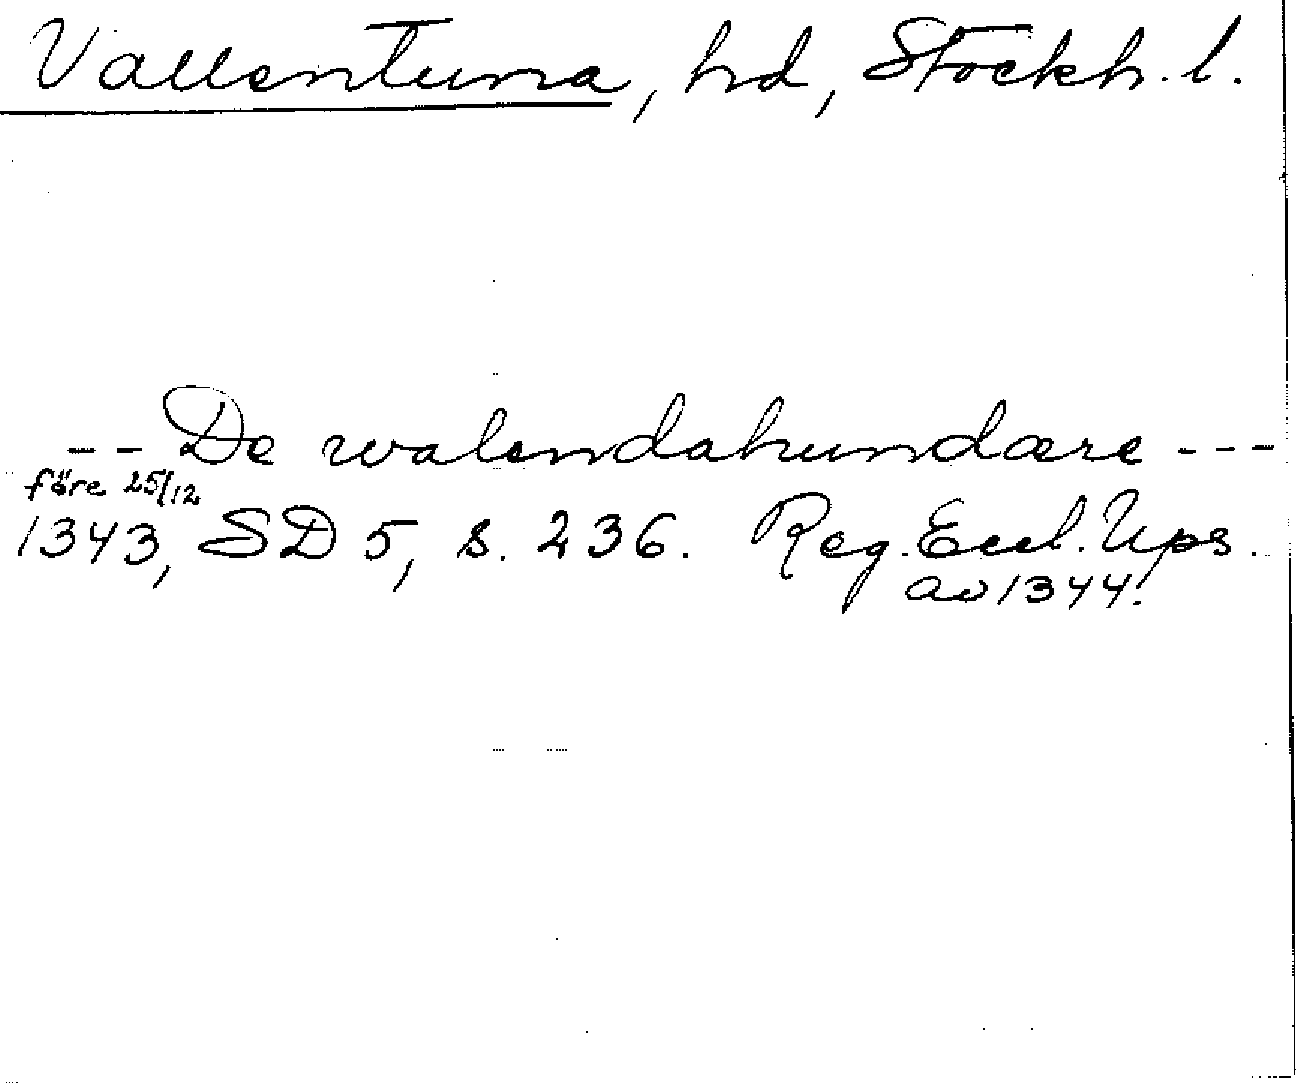 Vallentuna, hd, Stockh. l.
-- De walendahundære ---
före 25/12
1343, SD 5, s. 236. Reg. Eccl. Ups.
av 1344.